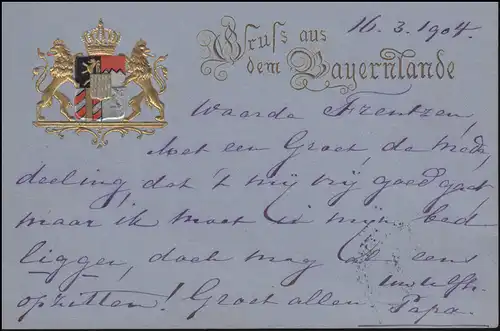 16.3.1904.
Gruss aus
dem Bayernlande
Waarde Frentzen,
Met een Groet, de mede,
deeling, dat 't mij vrij goed gaat
maar ik moet in mijn bed
liggen, doch mag al eens
opzitten! Groet allen Papa.